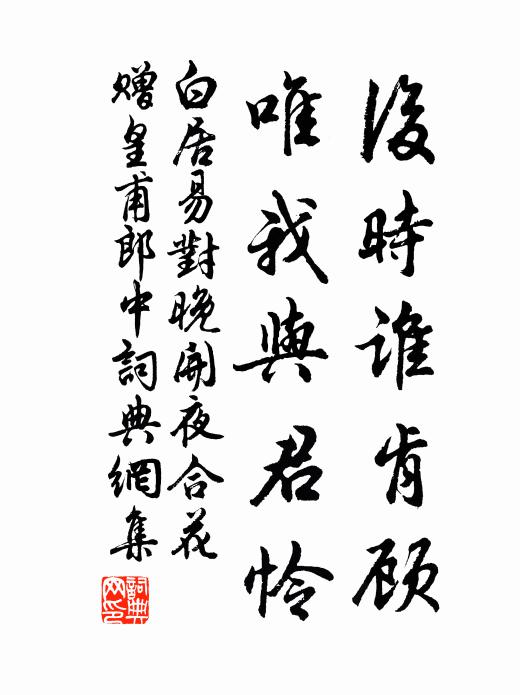 後時誰肯顧
唯我與君憐
白居易對晚開夜合花
贈皇甫郎中詞典網集
詞典網印